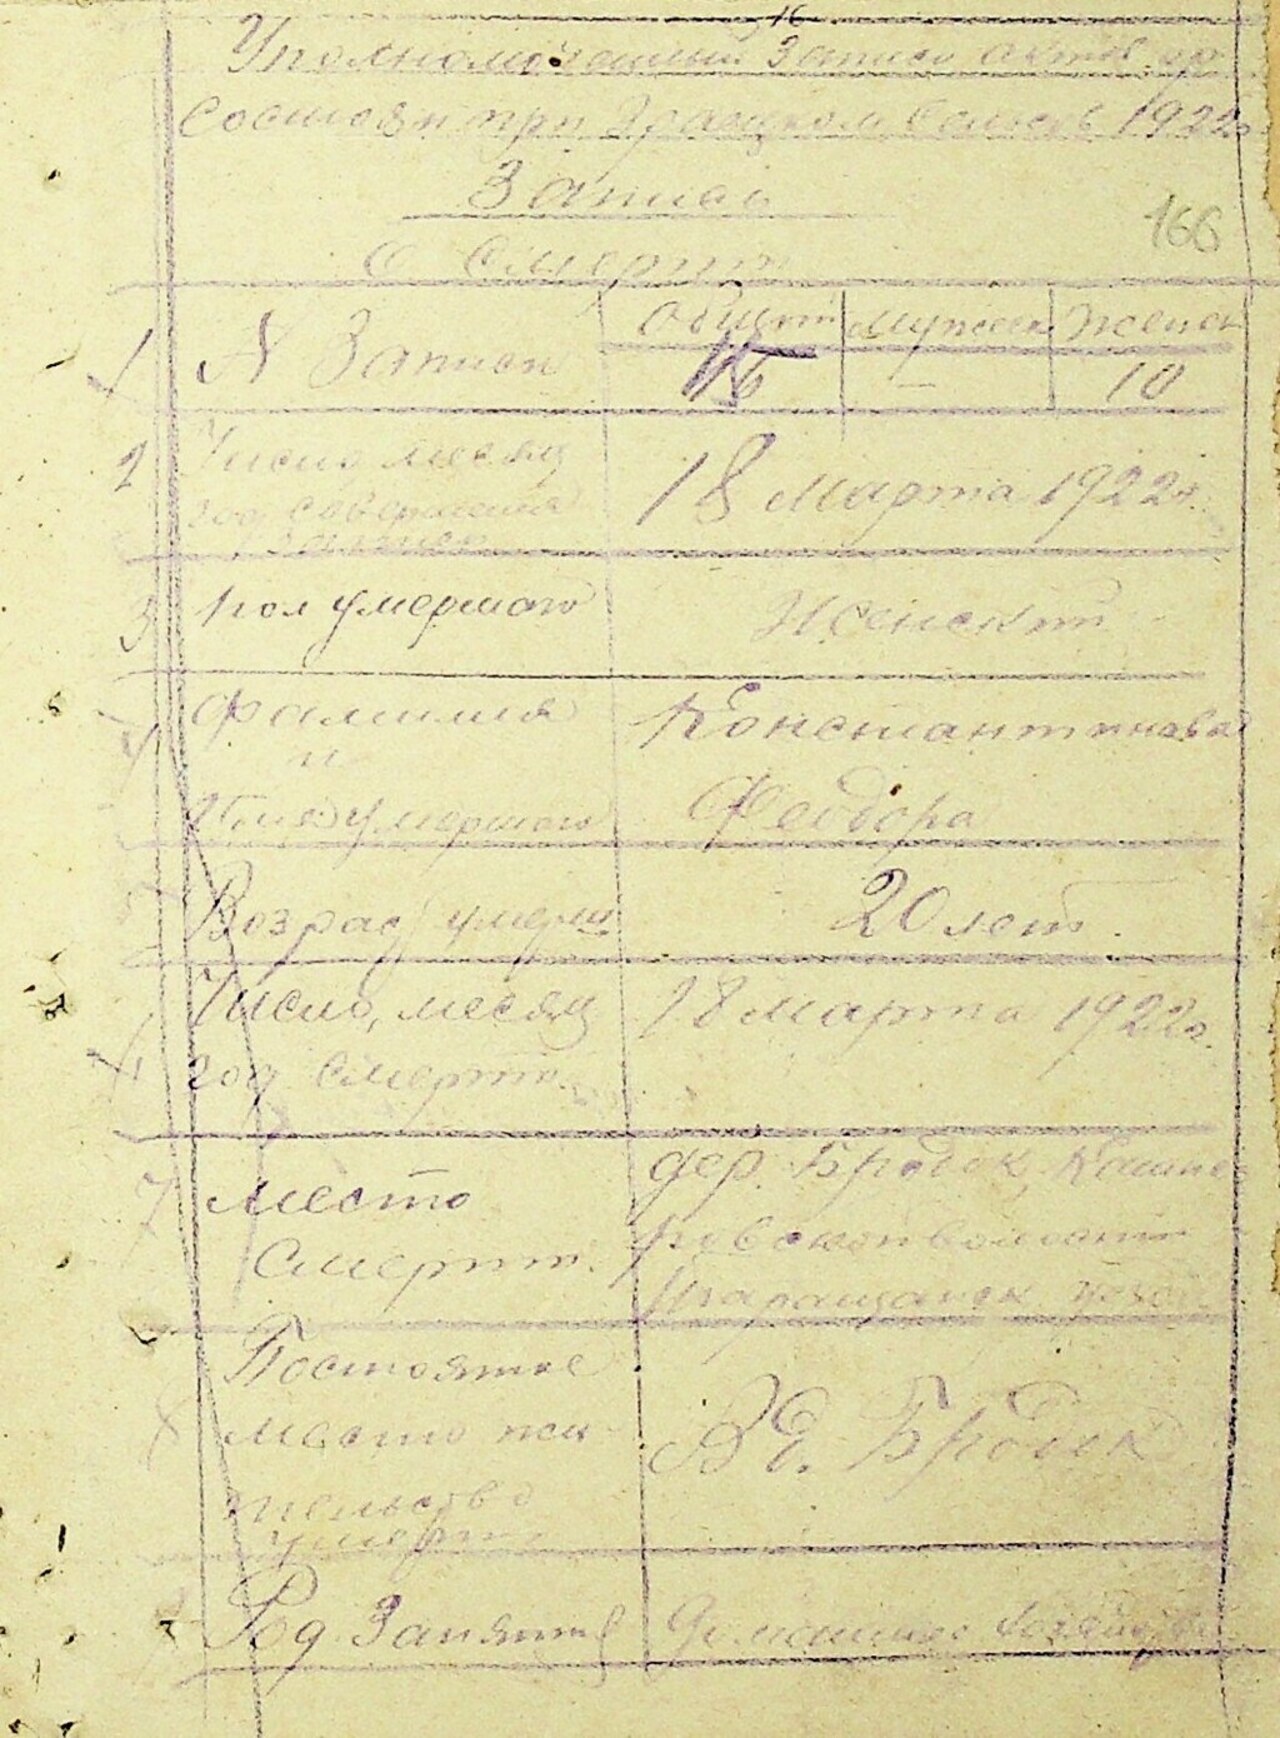 16
Уполномоченный Записи актов гр
Состояни при
1922г
Запись
О Смерти
166
1 N Записи
Общий Мужск Женск
16 — 10
2 Число месяц
год совершения
Записи
18 Марта 1922г.
3 пол умершого
Женский
4 Фамилия
и
Имя умершого
Константинова
Феодора
5 Возраст умерш
20 лет.
6 Число, месяц
год Смерти
18 марта 1922г.
7 место
Смерти.
дер. Бродек Кашпе
ровской волости
Таращанск уезд
8 Постояное
место жи
тельство
умерш
В д. Бродек
9 Род Занятий
Домашнее